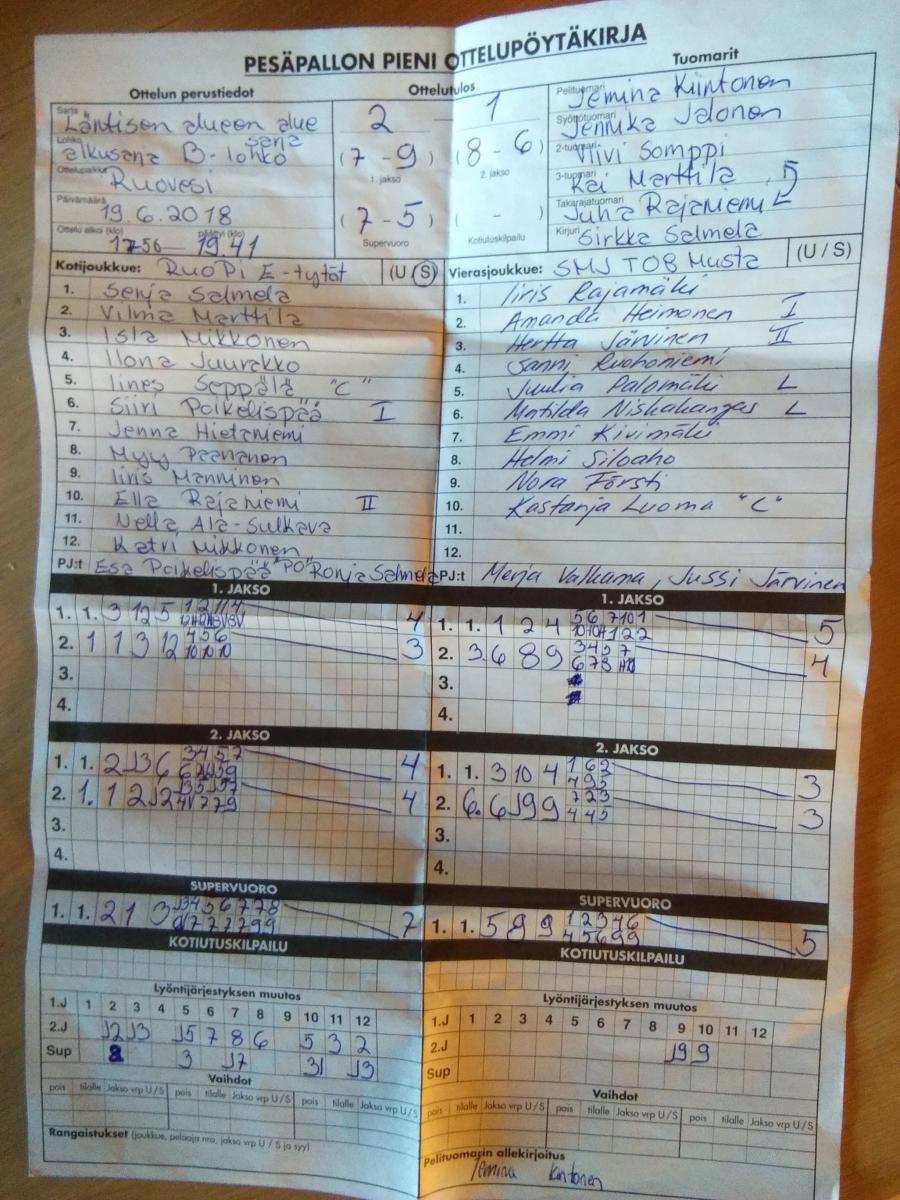 PESÄPALLON PIENI OTTELUPÖYTÄKIRJA
Ottelun perustiedot
Ottelutulos
Tuomarit
Sarja Läntisen alueen alue
sarja
Lohko alkusarja B-lohko
Ottelupaikka Ruovesi
Päivämäärä 19.6.2018
Ottelu alkoi (klo) 17.56 päättyi (klo) 19.41
2 - 1
(7 - 9) (8 - 6)
1. jakso 2. jakso
(7 - 5) ( - )
Supervuoro Kotiutuskilpailu
Pelituomari Jemina Kiintonen
Syöttötuomari Jennika Jalonen
2-tuomari Viivi Somppi
3-tuomari Kai Marttila
Takarajatuomari Juha Rajaniemi
Kirjuri Sirkka Salmela
Kotijoukkue: RuoPi E-tytöt (U / S)
1. Senja Salmela
2. Vilma Marttila
3. Isla Mikkonen
4. Ilona Juurakko
5. Iines Seppälä "C"
6. Siiri Poikelispää I
7. Jenna Hietaniemi
8. Myy Paananen
9. Iiris Manninen
10. Ella Rajaniemi II
11. Nella Ala-Sulkava
12. Katri Mikkonen
PJ:t Esa Poikelispää "PO" Ronja Salmela
Vierasjoukkue: SMJ T08 Musta (U / S)
1. Iiris Rajamäki
2. Amanda Heimonen I
3. Hertta Järvinen II
4. Sanni Ruohoniemi
5. Juulia Palomäki L
6. Matilda Niskakangas L
7. Emmi Kivimäki
8. Helmi Siloaho
9. Nora Försti
10. Kastanja Luoma "C"
11.
12.
PJ:t Merja Valkama, Jussi Järvinen
1. JAKSO
1. 1. 3 12 5 4
2. 1 1 3 12 4 5 6 3
10 10 10
3.
4.
1. JAKSO
1. 1. 1 2 4 5
2. 3. 6 8 9 3 4 5 7 4
3.
4.
2. JAKSO
1. 1. 2 J3 6 3 4 5 7 4
2. 1. 1 2 J2 4
3.
4.
2. JAKSO
1. 1. 3 10 4 1 6 2 3
4 9 5
2. 6. 6 J9 9 7 2 3 3
4 4 5
3.
4.
SUPERVUORO
1. 1. 2 1 3 J3 4 5 6 7 7 8 7
SUPERVUORO
1. 1. 5 8 9 1 2 3 4 6 5
4 5 6 9 9
KOTIUTUSKILPAILU
KOTIUTUSKILPAILU
Lyöntijärjestyksen muutos
1.J 1 2 3 4 5 6 7 8 9 10 11 12
2.J J2 J3 J5 7 8 6 5 3 2
Sup 3 J7 31 J3
Lyöntijärjestyksen muutos
1.J 1 2 3 4 5 6 7 8 9 10 11 12
2.J J9 9
Sup
Vaihdot
pois tilalle Jakso vrp U/S pois tilalle Jakso vrp U/S pois tilalle Jakso vrp U/S
Vaihdot
pois tilalle Jakso vrp U/S pois tilalle Jakso vrp U/S pois tilalle Jakso vrp U/S
Rangaistukset (joukkue, pelaaja nro, jakso vrp U / S ja syy)
Pelituomarin allekirjoitus
Jemina Kintonen